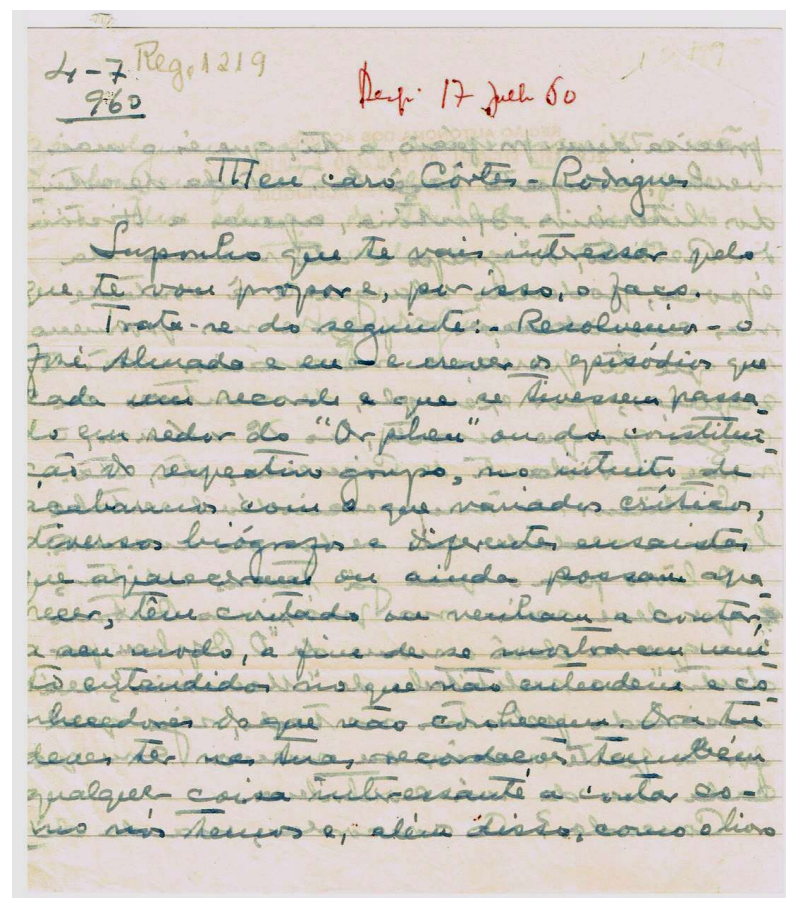 4-7 Reg. 1219
960
Resp. 17 Julh 60
Meu caro Côrtes-Rodrigues
Suponho que te vais interessar pelo
que te vou propor e, por isso, o faço.
Trata-se do seguinte:- Resolvemos - o
José Almada e eu - escrever os episódios que
cada um recorde e que se tivessem passa-
do em redor do "Orpheu" ou da constitui-
ção do respectivo grupo, no intuito de
acabarmos com o que váriados críticos,
diversos biógrafos e diferentes ensaistas
que apareceram ou ainda possam apa-
recer, têm contado ou venham a contar,
a seu modo, a fim de se mostrarem mui-
to entendidos no que não entendem e co-
nhecedores do que não conhecem. Ora tu
deves ter nas tuas recordações também
qualquer coisa interessante a contar co-
mo nós temos e, além disso, como o livro